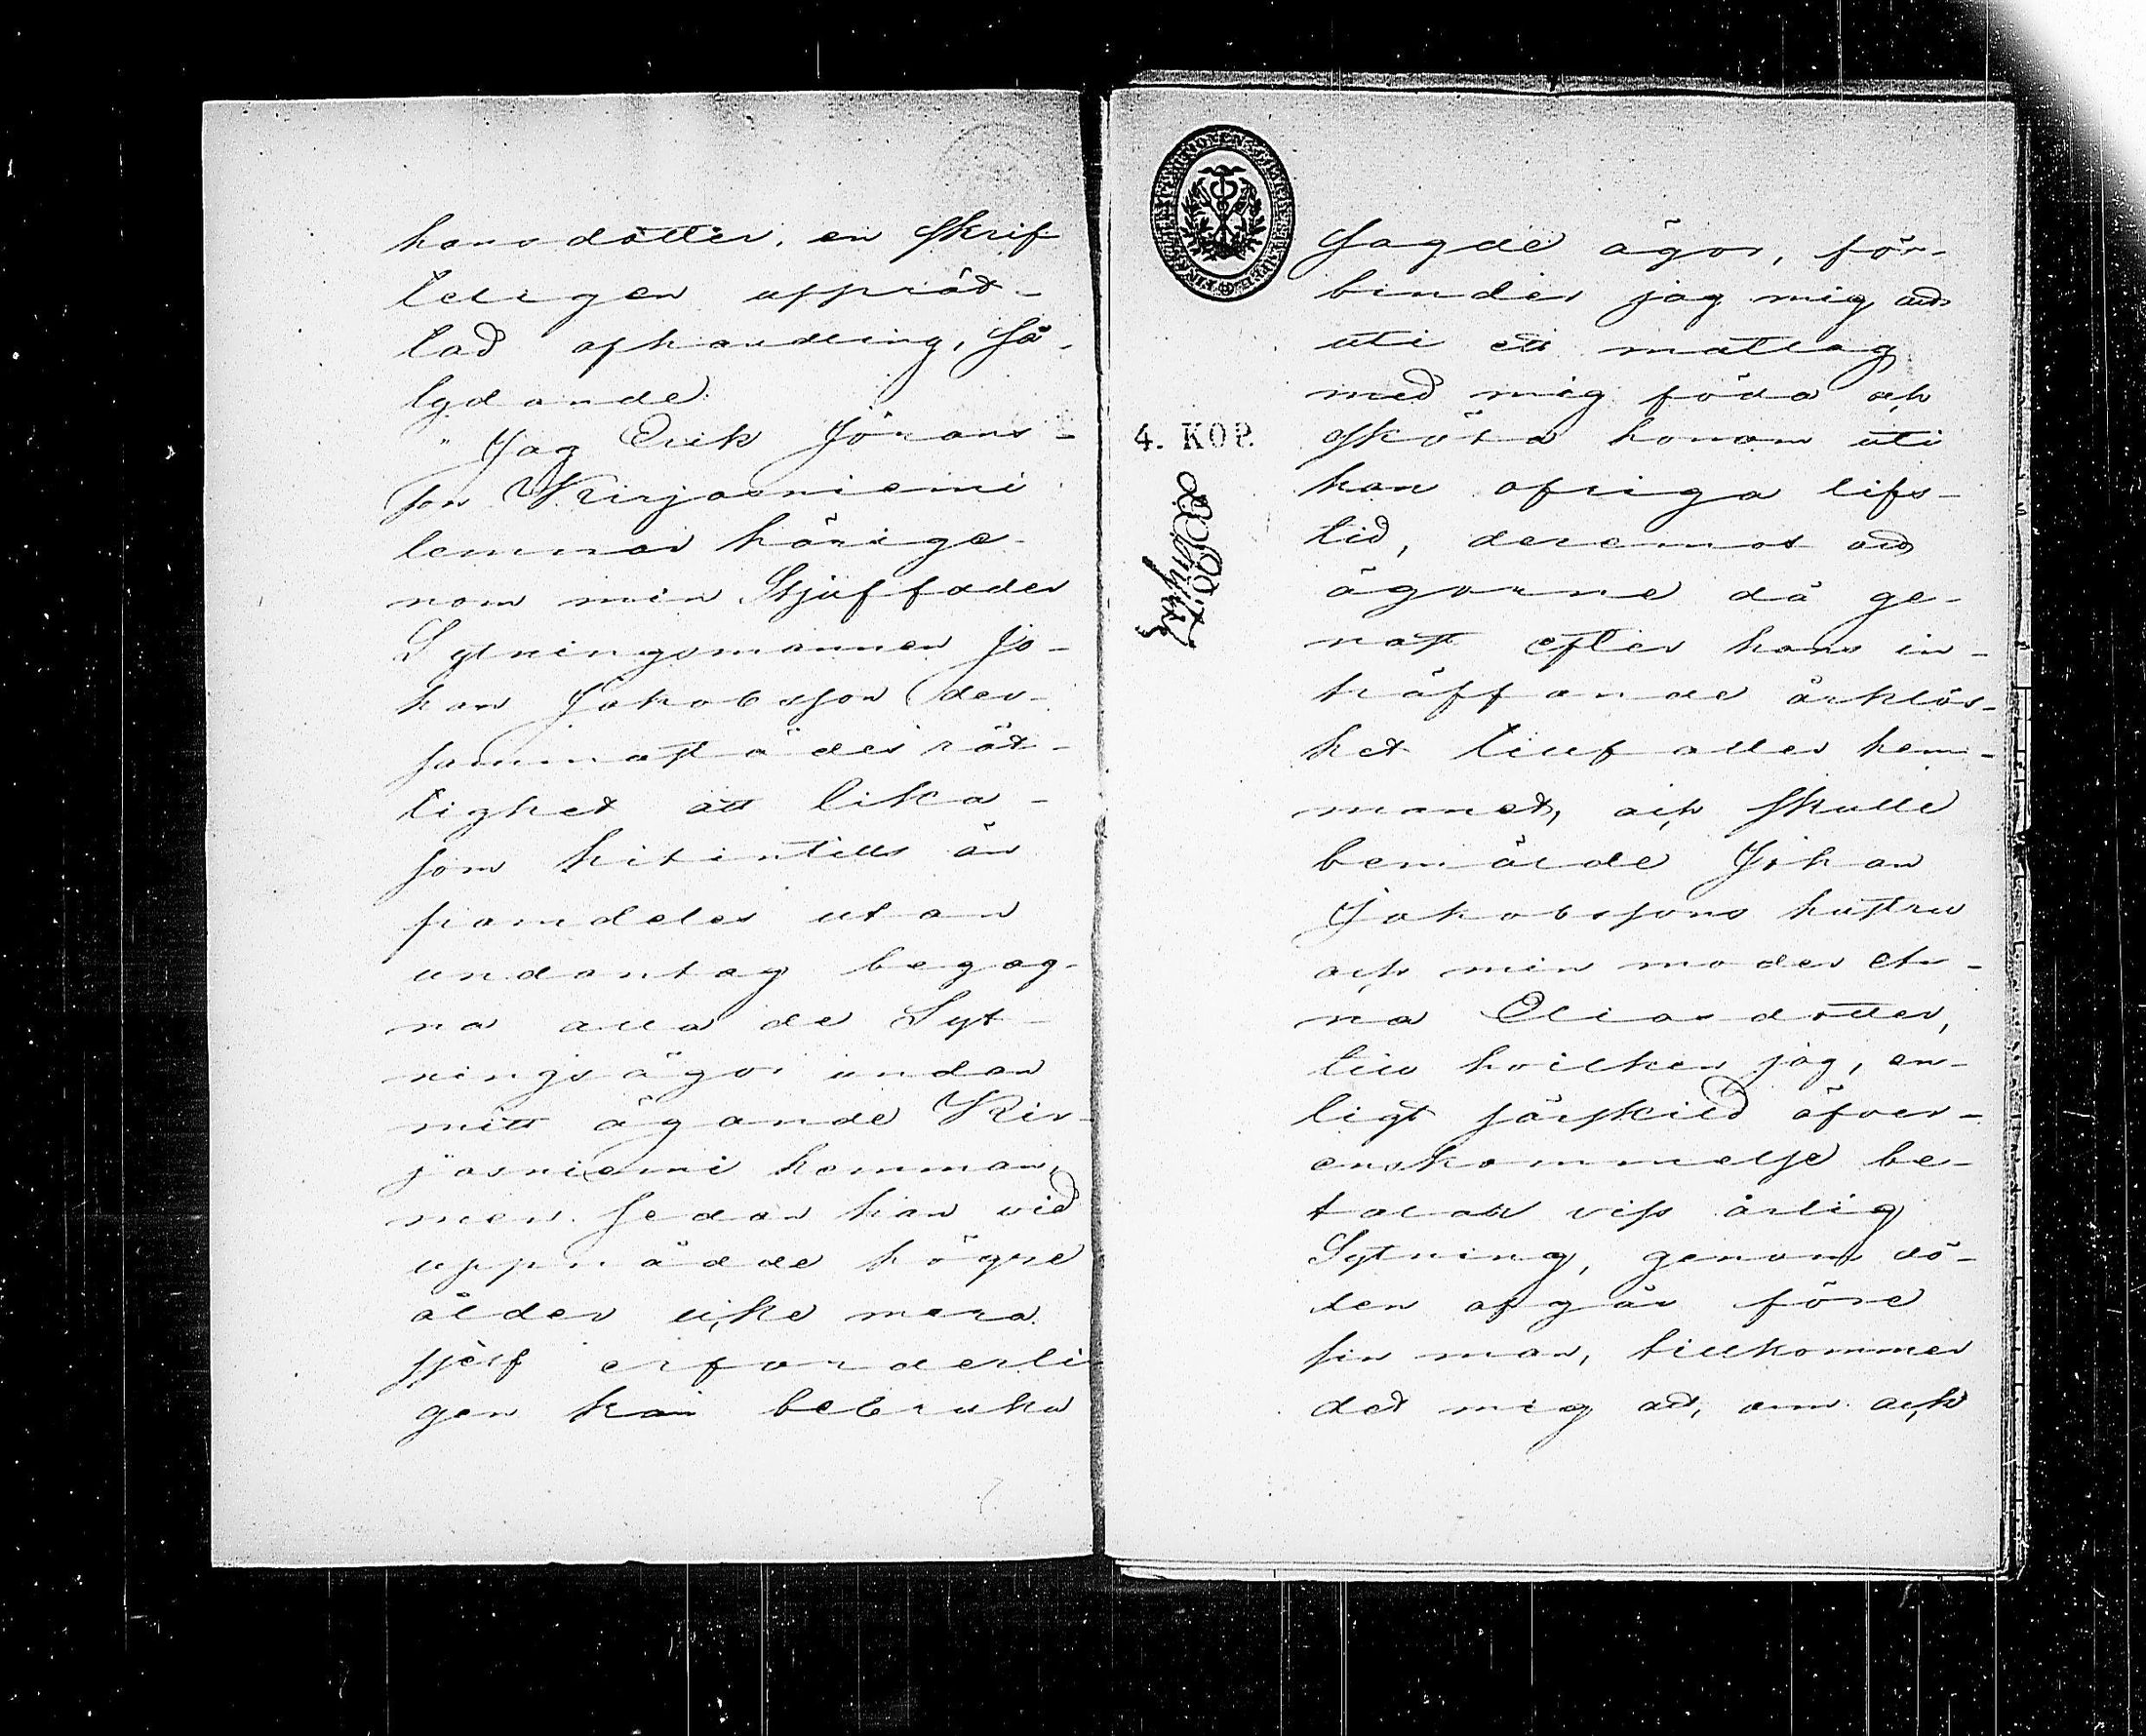 hansdotter, en skrif
teligen upprät-
tad afhandling, så-
lydande.
"Jag Erik Jörans-
son Kirjasniemi
lemnar härige-
nom min Stjuffader
Sytningsmannen Jo-
han Jakobsson der-
sammastädes rät-
tighet att lika-
som hitintills än
framdeles utan
undantag begag-
na alla de Syt-
ningsägor undan
mitt ägande Kir-
jasniemi hemman,
men sedan han vid
uppnådde högre
ålder icke mera
sjelf erforderli
gen kan bebruka
sagde ägor, för-
binder jag mig att
uti ett matlag
med mig föda och
sköta honom uti
hans öfriga lifs-
tid, deremot att
ägorne då ge-
nast efter hans in-
träffande årklös-
het tillfaller hem-
manet, och skulle
bemälde Johan
Jakobssons hustru
och min moder An-
na Eliasdotter,
till hvilken jag, en-
ligt särskild öfver-
enskommelse be-
talar viss årlig
Sytning, genom dö-
den afgår före
sin man, tillkommer
det mig att, om och
4. KOP.